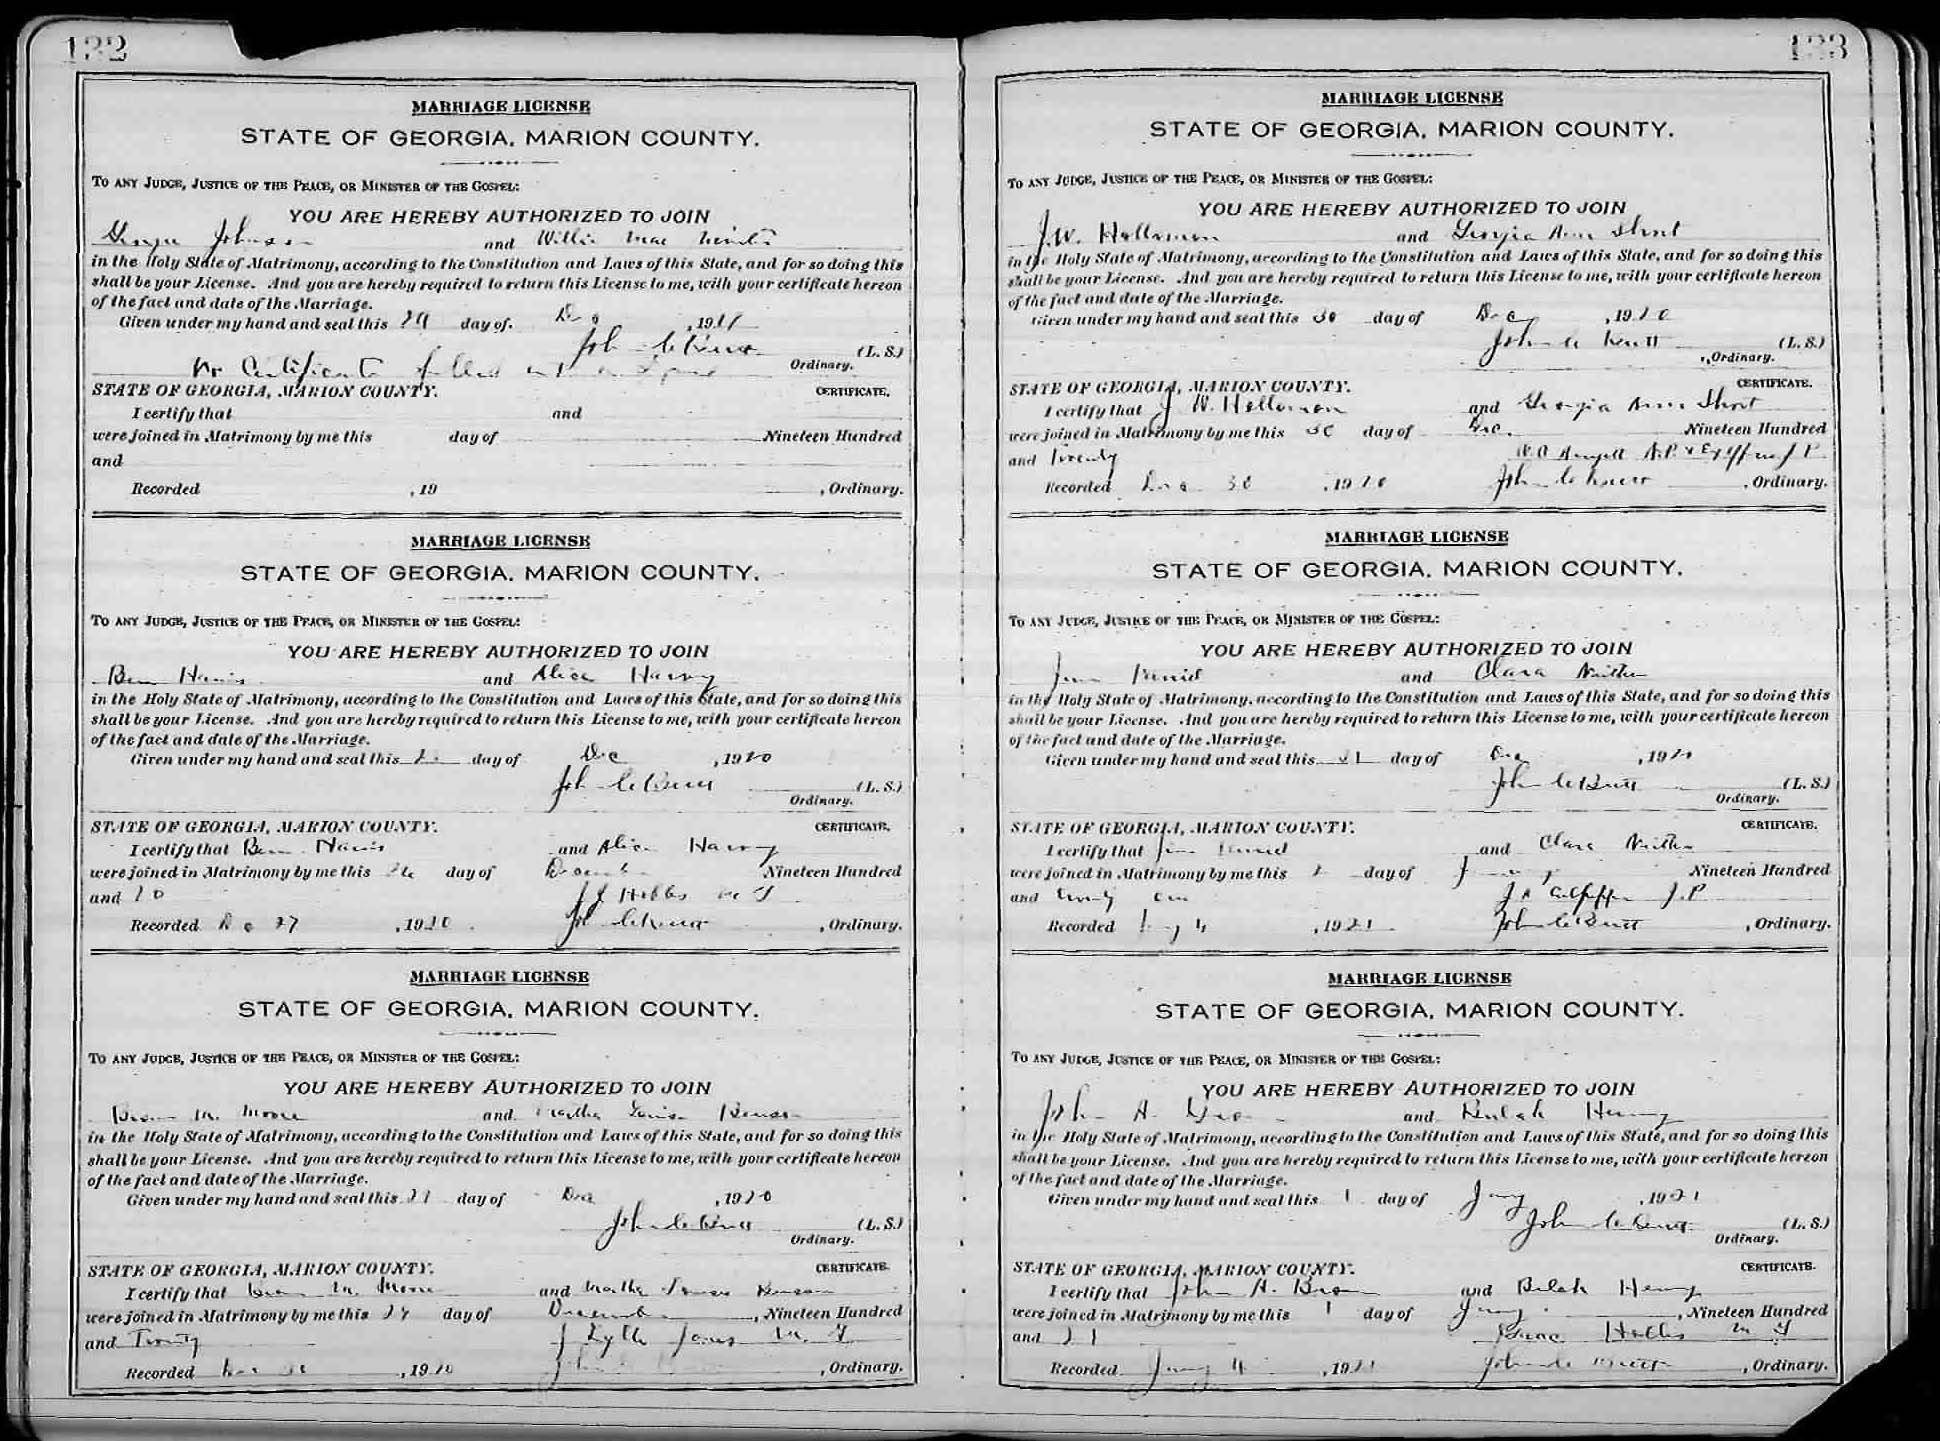 132
MARRIAGE LICENSE
STATE OF GEORGIA, MARION COUNTY.
TO ANY JUDGE, JUSTICE OF THE PEACE, OR MINISTER OF THE GOSPEL:
YOU ARE HEREBY AUTHORIZED TO JOIN
George Johnson and Willie Mae
in the Holy State of Matrimony, according to the Constitution and Laws of this State, and for so doing this
shall be your License. And you are hereby required to return this License to me, with your certificate hereon
of the fact and date of the Marriage.
Given under my hand and seal this day of. , 19
John C Butt (L. S.)
No Certificate filled Ordinary.
STATE OF GEORGIA, MARION COUNTY. CERTIFICATE.
I certify that and
were joined in Matrimony by me this day of Nineteen Hundred
and
Recorded , 19 , Ordinary.
MARRIAGE LICENSE
STATE OF GEORGIA, MARION COUNTY.
TO ANY JUDGE, JUSTICE OF THE PEACE, OR MINISTER OF THE GOSPEL:
YOU ARE HEREBY AUTHORIZED TO JOIN
Ben Harris and Alice Harvey
in the Holy State of Matrimony, according to the Constitution and Laws of this State, and for so doing this
shall be your License. And you are hereby required to return this License to me, with your certificate hereon
of the fact and date of the Marriage.
Given under my hand and seal this day of Dec , 1920
John C Butt (L. S.)
Ordinary.
STATE OF GEORGIA, MARION COUNTY. CERTIFICATE.
I certify that Ben Harris and Alice Harvey
were joined in Matrimony by me this 26 day of December Nineteen Hundred
and 20 J J Hobbs M G
Recorded Dec 27 , 1920 John C Butt , Ordinary.
MARRIAGE LICENSE
STATE OF GEORGIA, MARION COUNTY.
TO ANY JUDGE, JUSTICE OF THE PEACE, OR MINISTER OF THE GOSPEL:
YOU ARE HEREBY AUTHORIZED TO JOIN
M. Moore and Martha Louise Benson
in the Holy State of Matrimony, according to the Constitution and Laws of this State, and for so doing this
shall be your License. And you are hereby required to return this License to me, with your certificate hereon
of the fact and date of the Marriage.
Given under my hand and seal this day of Dec , 1920
John C Butt (L. S.)
Ordinary.
STATE OF GEORGIA, MARION COUNTY. CERTIFICATE.
I certify that M. Moore and Martha Louise Benson
were joined in Matrimony by me this day of December , Nineteen Hundred
and Twenty J Lytle Jones M. G
Recorded Dec , 1920 John , Ordinary.
133
MARRIAGE LICENSE
STATE OF GEORGIA, MARION COUNTY.
TO ANY JUDGE, JUSTICE OF THE PEACE, OR MINISTER OF THE GOSPEL:
YOU ARE HEREBY AUTHORIZED TO JOIN
J. W. Holloman and Georgia Ann Short
in the Holy State of Matrimony, according to the Constitution and Laws of this State, and for so doing this
shall be your License. And you are hereby required to return this License to me, with your certificate hereon
of the fact and date of the Marriage.
Given under my hand and seal this 30 day of Dec , 1920
John C Butt (L. S.)
, Ordinary.
STATE OF GEORGIA, MARION COUNTY. CERTIFICATE.
I certify that J W. Holloman and Georgia Ann Short
were joined in Matrimony by me this 30 day of Dec. Nineteen Hundred
and Twenty N.P. & Ex Officio J P
Recorded Dec 30 , 1920 John C Butt , Ordinary.
MARRIAGE LICENSE
STATE OF GEORGIA, MARION COUNTY.
TO ANY JUDGE, JUSTICE OF THE PEACE, OR MINISTER OF THE GOSPEL:
YOU ARE HEREBY AUTHORIZED TO JOIN
Jim and Clara
in the Holy State of Matrimony, according to the Constitution and Laws of this State, and for so doing this
shall be your License. And you are hereby required to return this License to me, with your certificate hereon
of the fact and date of the Marriage.
Given under my hand and seal this 31 day of Dec , 1920
John C Butt (L. S.)
Ordinary.
STATE OF GEORGIA, MARION COUNTY. CERTIFICATE.
I certify that Jim and Clara
were joined in Matrimony by me this day of Nineteen Hundred
and twenty one Culpepper J. P
Recorded 4 , 1921 John C Butt , Ordinary.
MARRIAGE LICENSE
STATE OF GEORGIA, MARION COUNTY.
TO ANY JUDGE, JUSTICE OF THE PEACE, OR MINISTER OF THE GOSPEL:
YOU ARE HEREBY AUTHORIZED TO JOIN
John H. and Beulah Henry
in the Holy State of Matrimony, according to the Constitution and Laws of this State, and for so doing this
shall be your License. And you are hereby required to return this License to me, with your certificate hereon
of the fact and date of the Marriage.
Given under my hand and seal this 1 day of Jany , 1921
John C Butt (L. S.)
Ordinary.
STATE OF GEORGIA, MARION COUNTY. CERTIFICATE.
I certify that John H. and Henry
were joined in Matrimony by me this 1 day of Jany. , Nineteen Hundred
and 21 Isaac Hollis M G
Recorded Jany 4 , 1921 John C Butt , Ordinary.